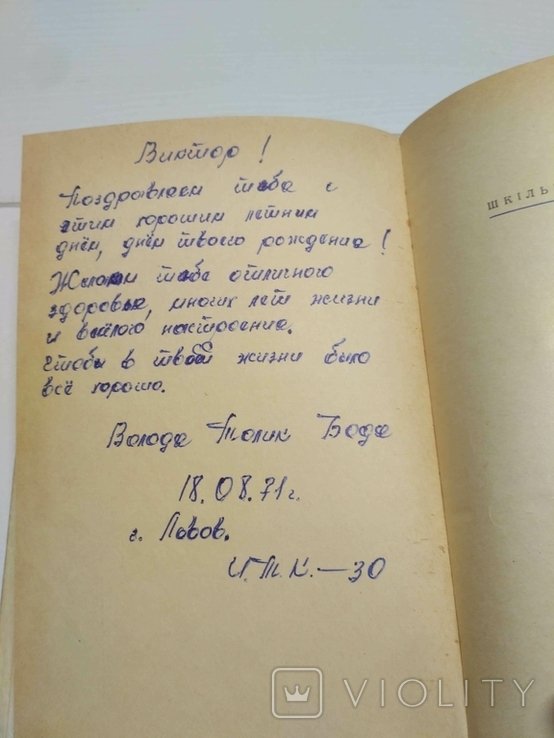 Виктор!
Поздравляем тебя с
этим хорошим летним
днём, днём твоего рождения!
Желаем тебе отличного
здоровья, многих лет жизни
и весёлого настроения.
Чтобы в твоей жизни было
всё хорошо.
Володя Толик Бодя
18.08.71г.
г. Львов.
И.Т.К.-30
ШКІЛЬ
VIOLITY